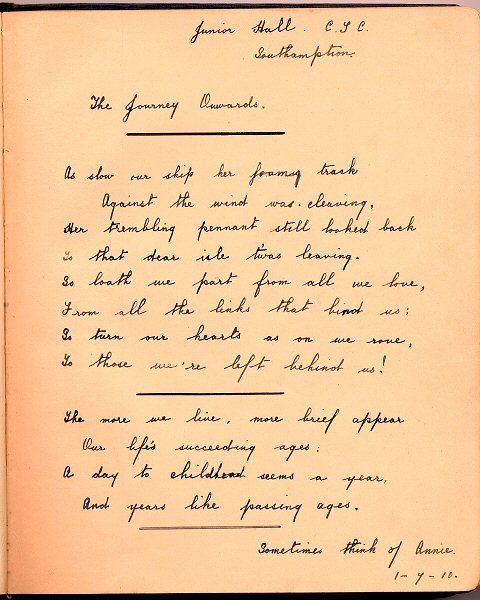 Junior Hall. C. S C.
Southampton.
The Journey Onwards.
As slow our ship her foamy track
Against the wind was cleaving,
Her trembling pennant still looked back
To that dear isle t'was leaving.
So loath we part from all we love,
From all the links that bind us;
So turn our hearts as on we rove,
To those we're left behind us!
The more we live, more brief appear
Our life's succeeding ages:
A day to childhead seems a year,
And years like passing ages.
Sometimes think of Annie.
1-7-10.